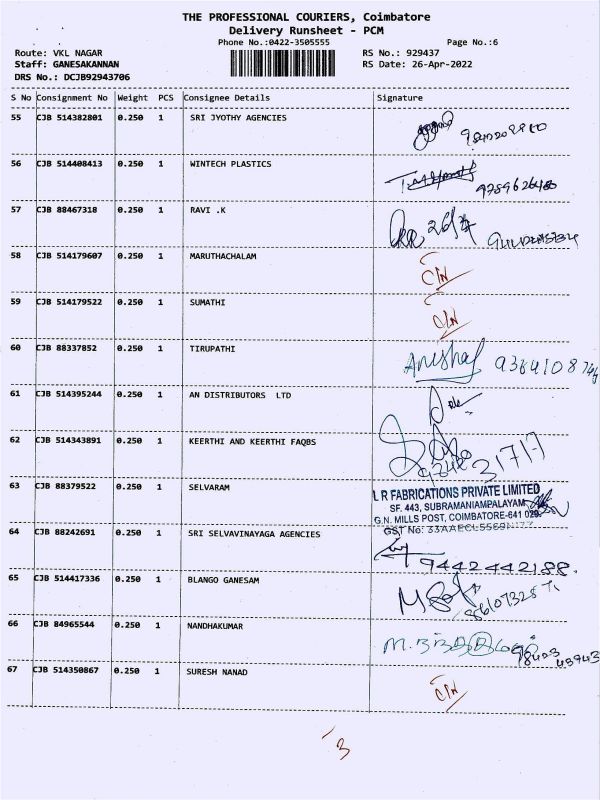 THE PROFESSIONAL COURIERS, Coimbatore
Delivery Runsheet - PCM
Phone No.:0422-3505555 Page No.:6
Route: VKL NAGAR RS No.: 929437
Staff: GANESAKANNAN RS Date: 26-Apr-2022
DRS No.: DCJB92943706
S No Consignment No Weight PCS Consignee Details Signature
55 CJB 514382801 0.250 1 SRI JYOTHY AGENCIES
56 CJB 514408413 0.250 1 WINTECH PLASTICS
57 CJB 88467318 0.250 1 RAVI .K
58 CJB 514179607 0.250 1 MARUTHACHALAM C/N
59 CJB 514179522 0.250 1 SUMATHI C/N
60 CJB 88337852 0.250 1 TIRUPATHI
61 CJB 514395244 0.250 1 AN DISTRIBUTORS LTD
62 CJB 514343891 0.250 1 KEERTHI AND KEERTHI FAQBS
63 CJB 88379522 0.250 1 SELVARAM
L R FABRICATIONS PRIVATE LIMITED
SF. 443, SUBRAMANIAMPALAYAM
G.N. MILLS POST, COIMBATORE-641 029
GST No:
64 CJB 88242691 0.250 1 SRI SELVAVINAYAGA AGENCIES
9442442188.
65 CJB 514417336 0.250 1 BLANGO GANESAM
66 CJB 84965544 0.250 1 NANDHAKUMAR
67 CJB 514350867 0.250 1 SURESH NANAD C/N
3